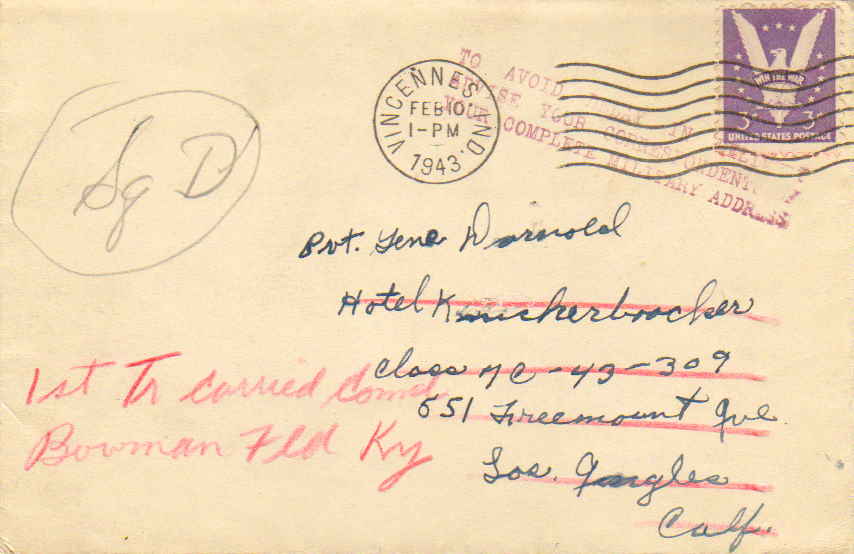 TO AVOID DELAY IN DELIVERY
ADVISE YOUR CORRESPONDENTS OF
YOUR COMPLETE MILITARY ADDRESS
VINCENNES, IND.
FEB 10
1-PM
1943
WIN THE WAR
3¢ 3¢
UNITED STATES POSTAGE
Sq D
Pvt. Gene Darnold
Hotel Knickerboocker
Class AC-43-309
651 Freemount Ave
Los. Angles
Calf.
1st Tr carried Comd
Bowman Fld Ky